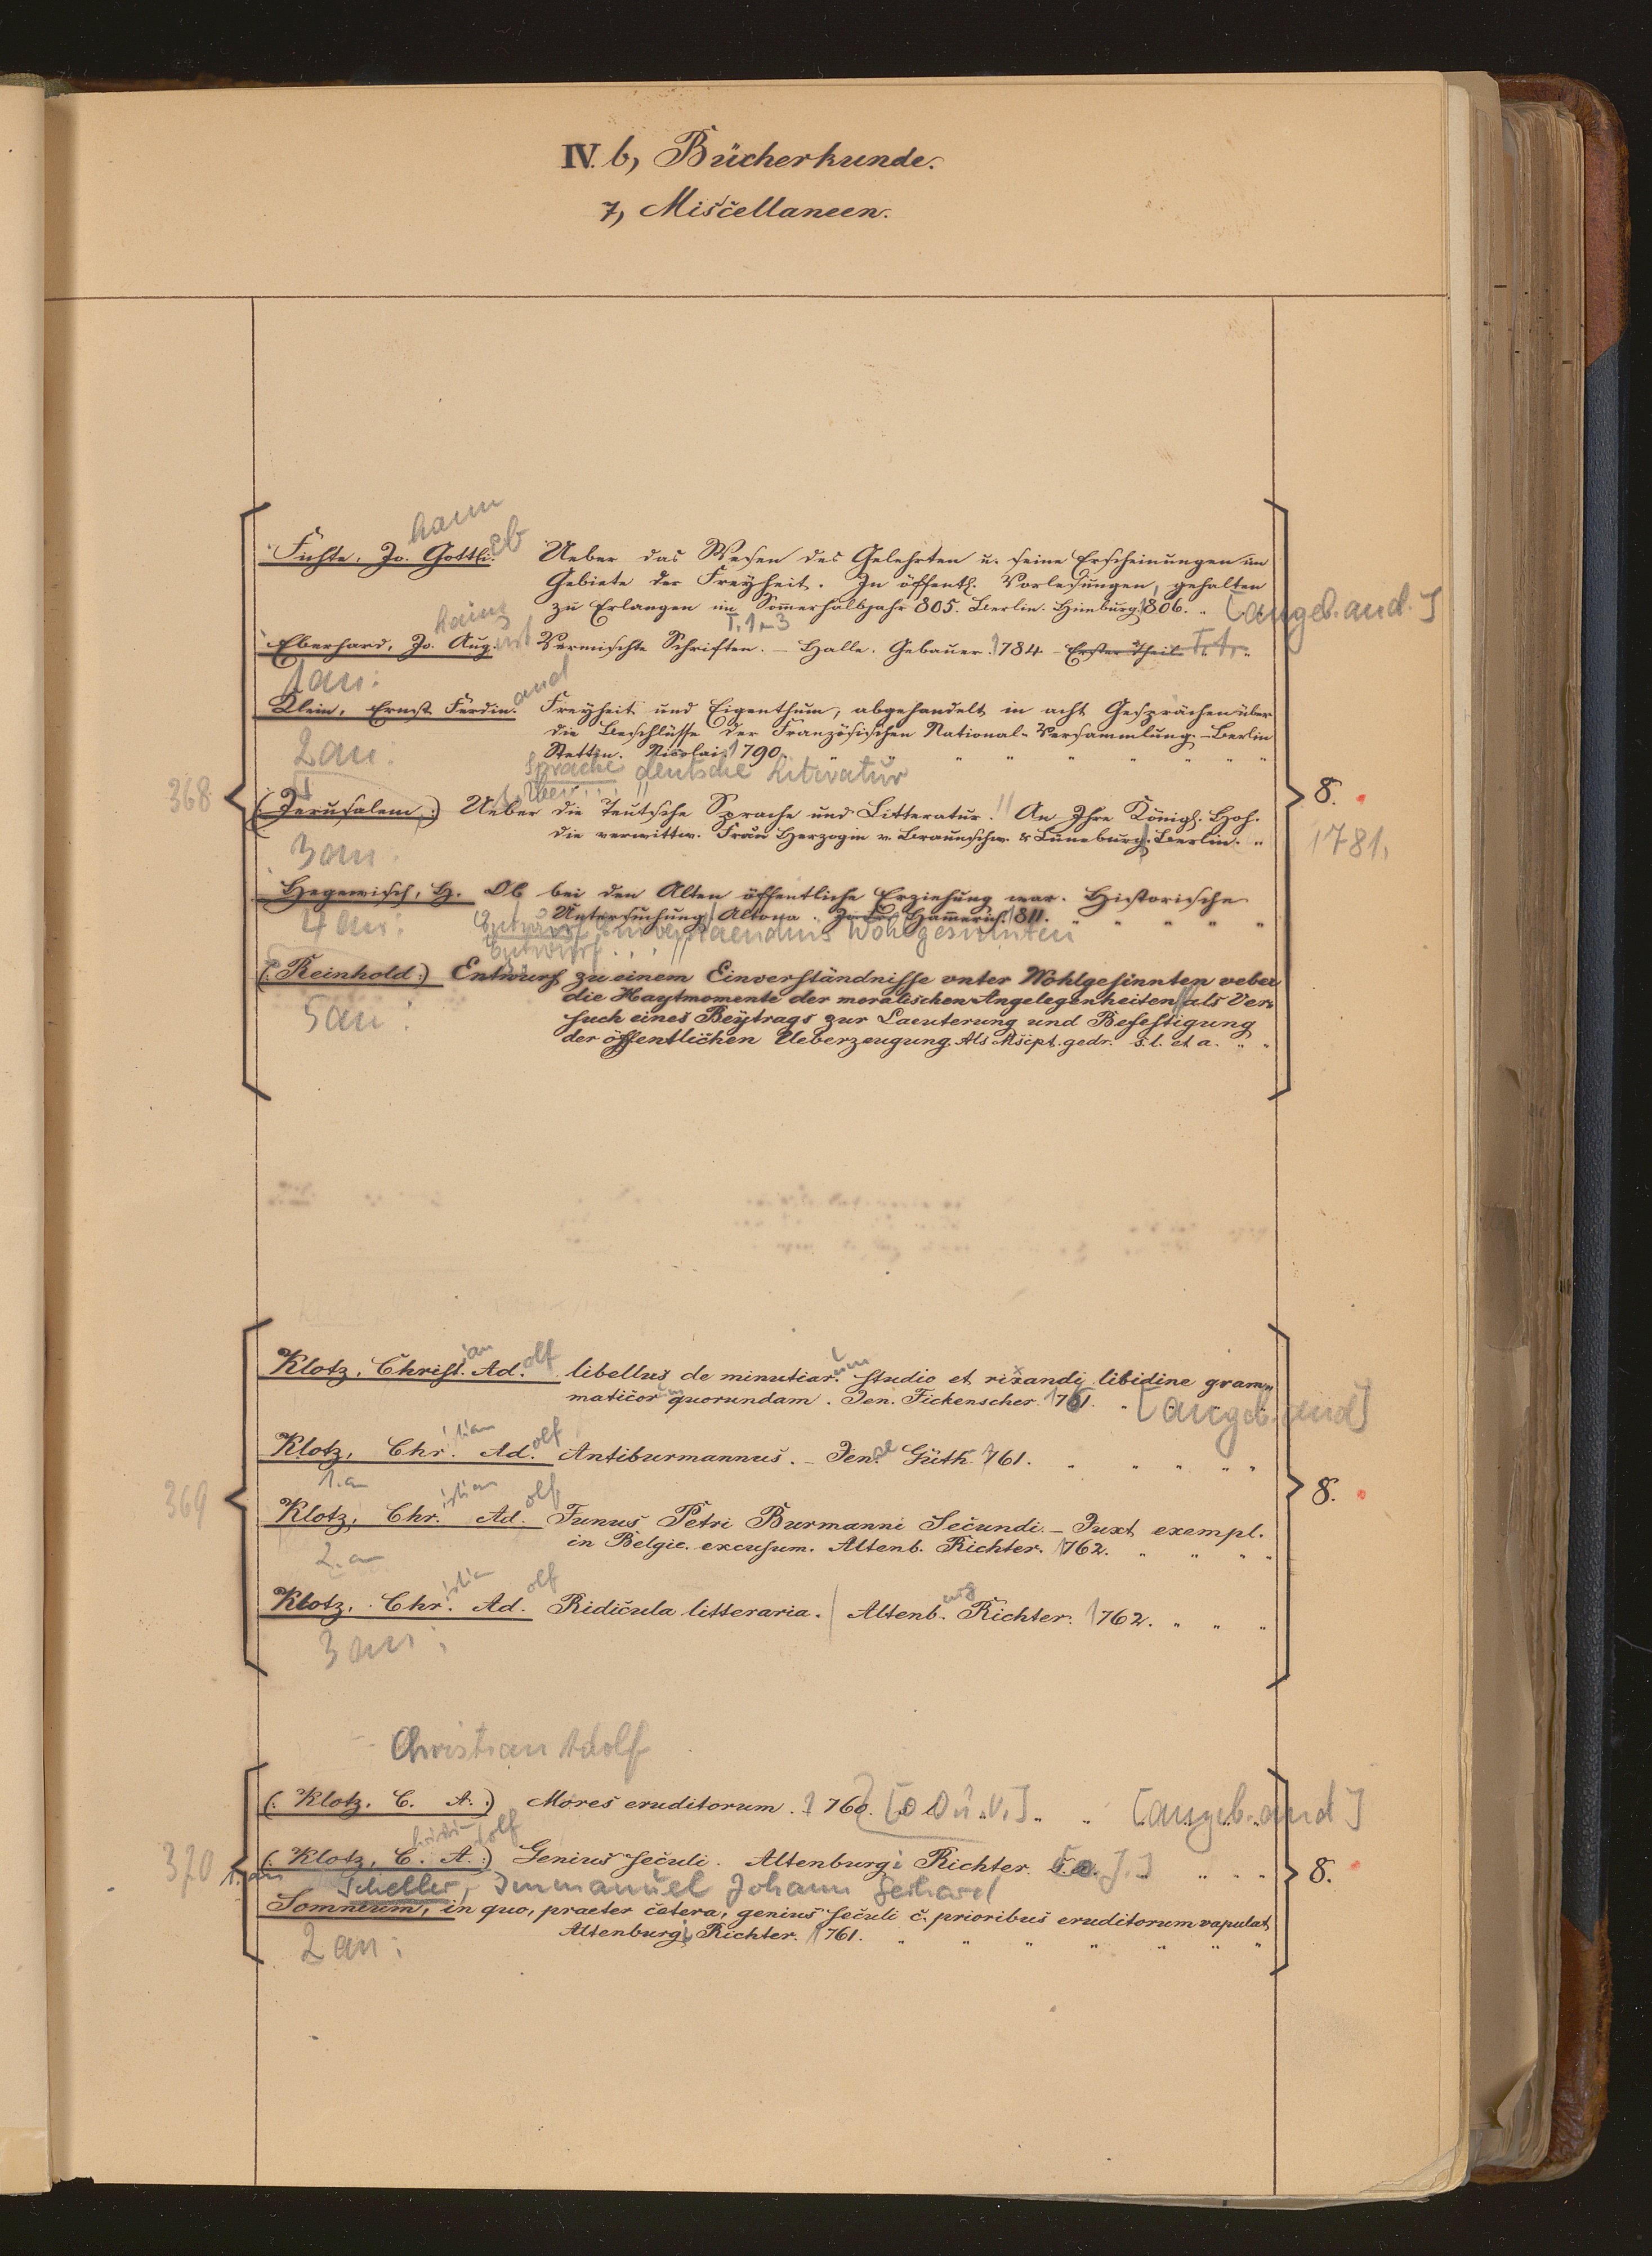 IV. b, Bücherkunde.
7, Miscellaneen.
hann
Fichte, Jo. Gottli. eb Ueber das Wesen des Gelehrten u. seine Erscheinungen im
Gebiete der Freyheit. In öffentl. Vorlesungen, gehalten
zu Erlangen im Sommerhalbjahr 805. Berlin. Himburg. 1806. [angeb. and.]
T. 1-3
Eberhard, Jo. Aug. ust Vermischte Schriften. – Halle. Gebauer. 1784 – Erster Theil. T. 1.
1 an:
and
Klein, Ernst Ferdin. Freyheit und Eigenthum, abgehandelt in acht Gesprächen über
die Beschlüsse der Französischen National-Versammlung. – Berlin
2 an:
Stettin. Nicolai. 1790.
Sprache deutsche Literatur
368
1. Über...
(: Jerusalem :) Ueber die Teutsche Sprache und Litteratur. // An Ihre Königl. Hoh.
die verwittw. Frau Herzogin v. Braunschw. & Lüneburg. Berlin.
8.
1781.
3 an.
Hegewisch, H. Ob bei den Alten öffentliche Erziehung war. Historische
Untersuchung / Altona. Hammerich. 1811.
4 an:
Entwurf Einverstaendnis Wohlgesinnten
Entwurf...//
(: Reinhold :) Entwurf zu einem Einverständnisse unter Wohlgesinnten ueber
die Haytmomente der moralischen Angelegenheiten // als Ver-
such eines Beytrags zur Laeuterung und Befestigung
der öffentlichen Ueberzeugung. Als Mscpt. gedr. s. l. et a.
5 an:
ian olf um
Klotz, Christ. Ad. libellus de minutiar. studio et rixandi libidine gram-
maticor um quorundam. Jen. Fickenscher. 1761. [angeb. and]
istian olf
Klotz, Chr. Ad. Antiburmannus. – Jen. ae Güth. 1761.
1. an
369
istian olf
Klotz, Chr. Ad. Funus Petri Burmanni Secundi. – Juxt. exempl.
in Belgic. excusum. Altenb. Richter. 1762.
8.
2. an
istian olf urg
Klotz, Chr. Ad. Ridicula litteraria. / Altenb. Richter. 1762.
3 an:
Christian Adolf
(: Klotz, C. A. :) Mores eruditorum. 1760. [O. O. u. V.] [angeb. and]
dolf
370
(: Klotz, C. A. :) Genius seculi. Altenburgi Richter. [o. J.]
8.
1. an
Scheller, Immanuel Johann Gerhard
Somnium, in quo, praeter cetera, genius seculi c. prioribus eruditorum vapulat
Altenburgi Richter. 1761.
2 an: